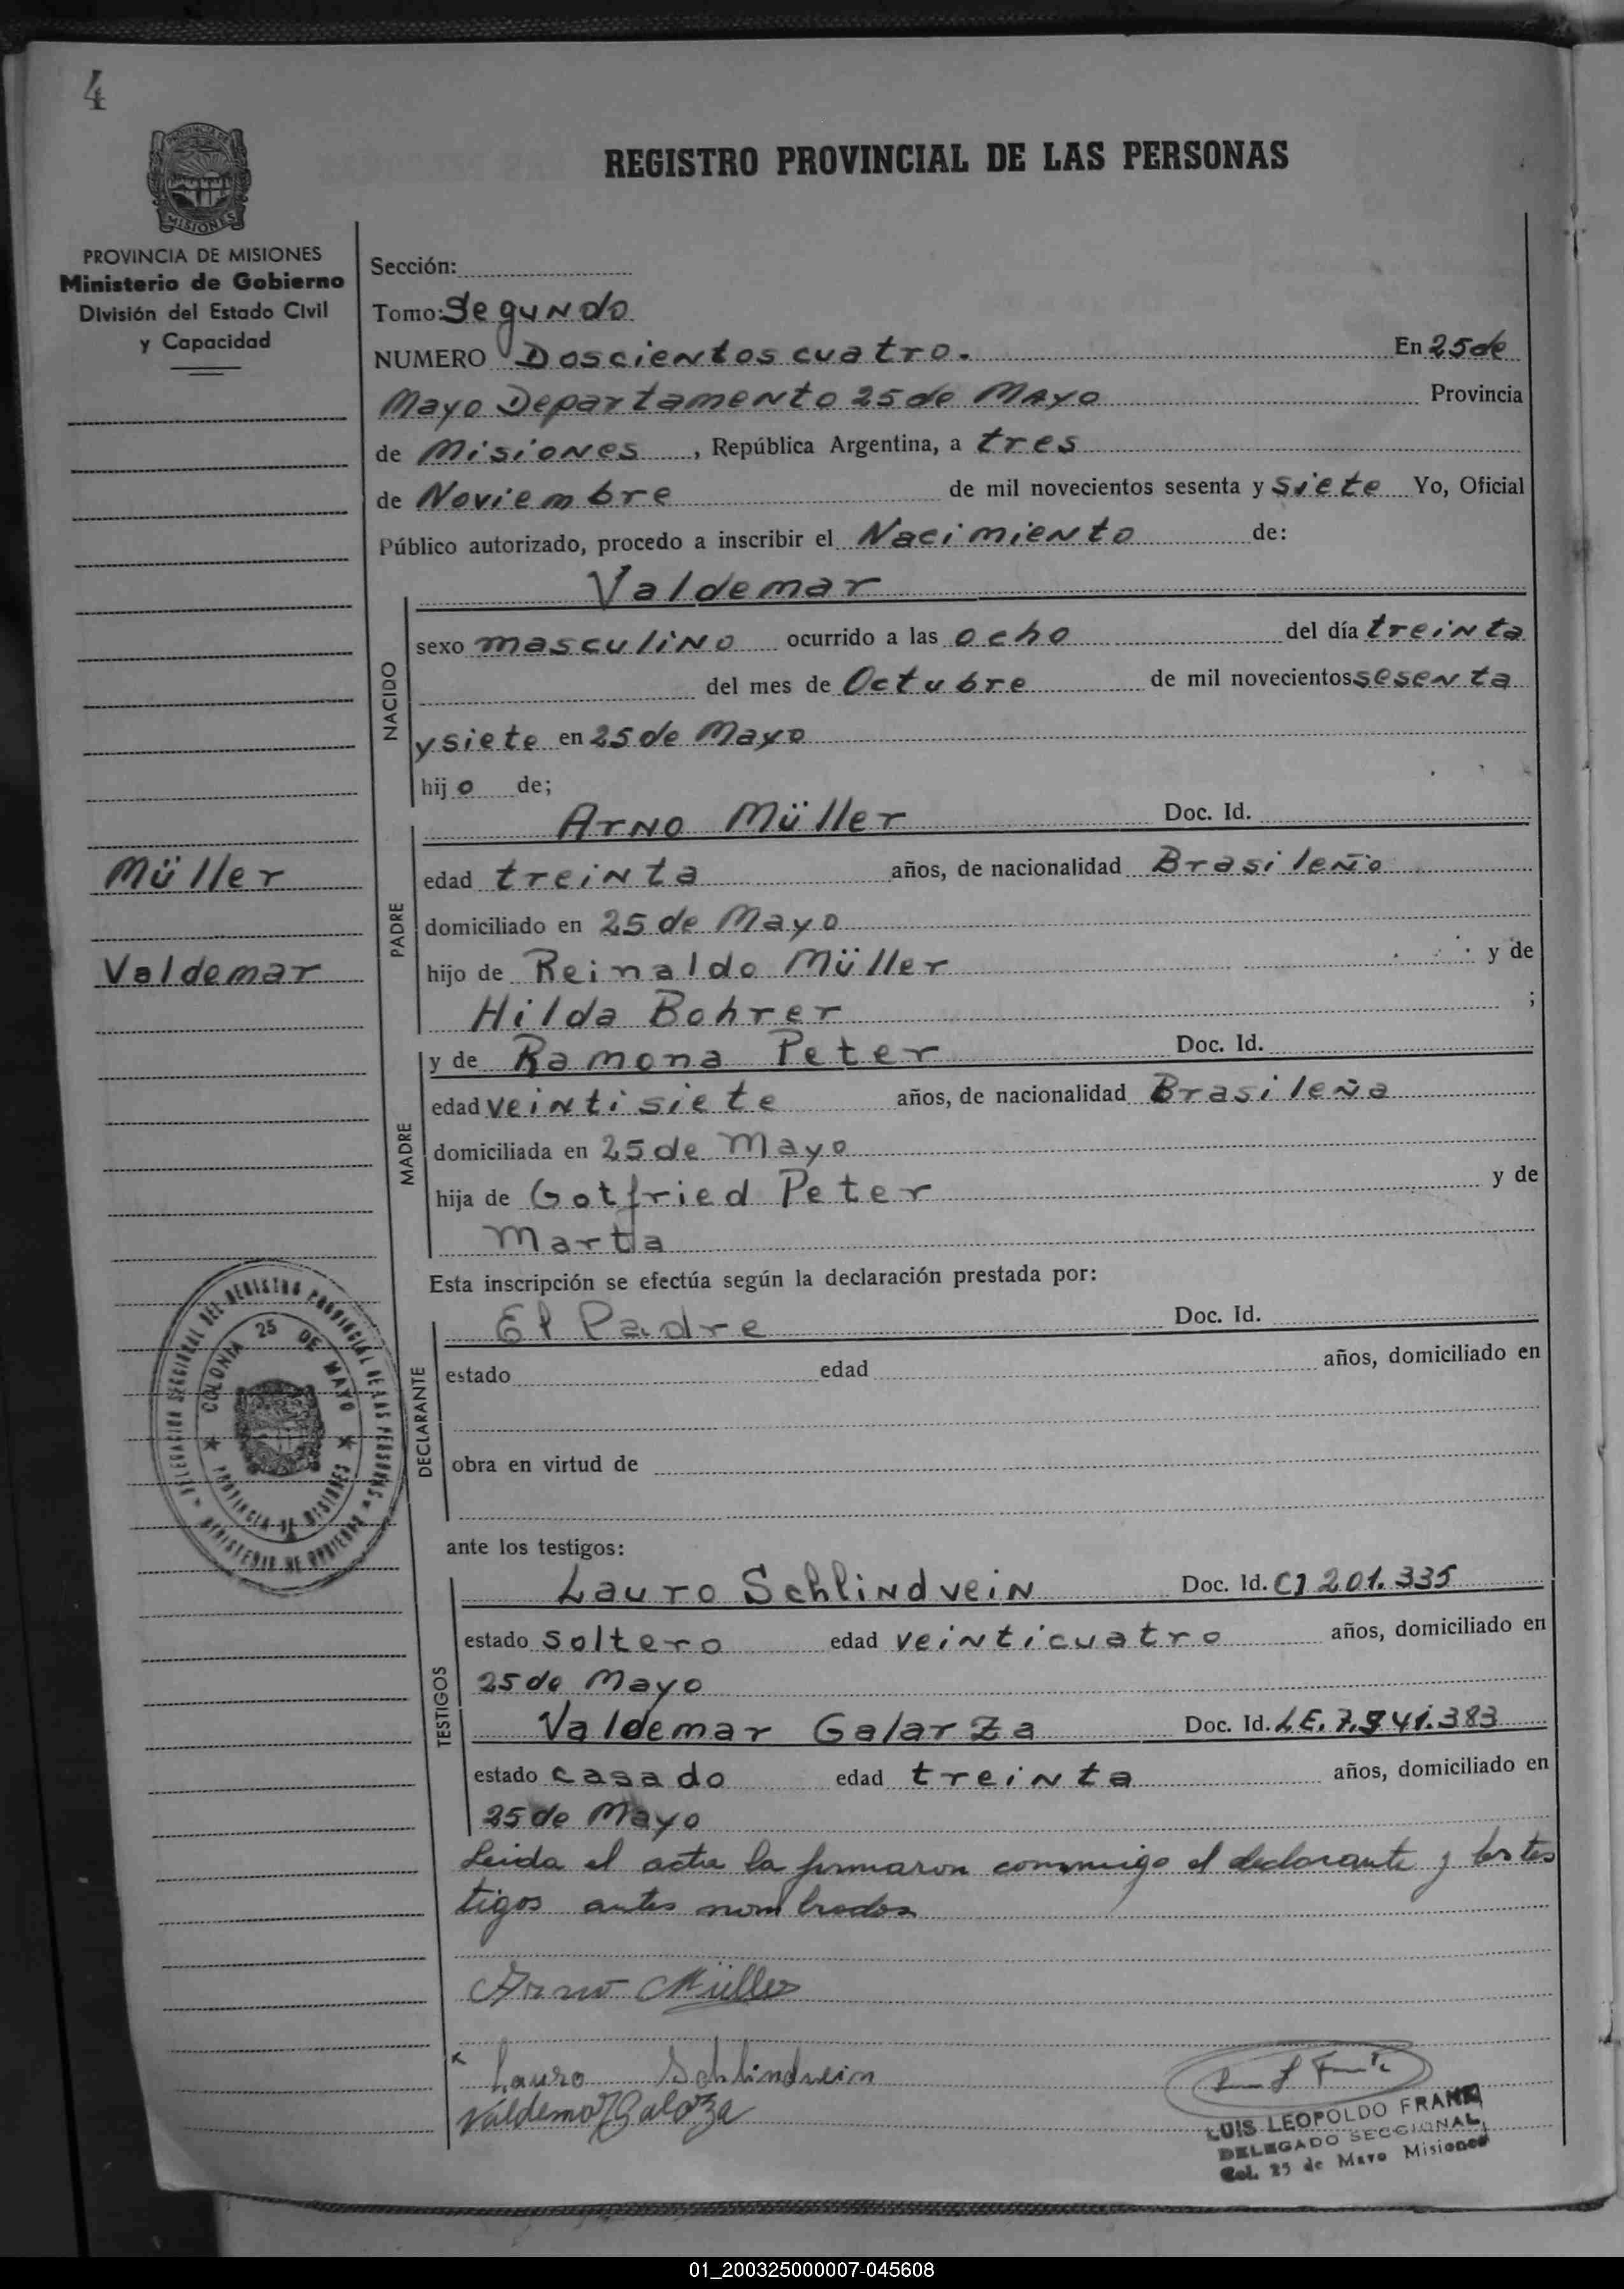 4
REGISTRO PROVINCIAL DE LAS PERSONAS
PROVINCIA DE MISIONES
Ministerio de Gobierno
División del Estado Civil
y Capacidad
Sección:
Tomo: Segundo
NUMERO Doscientos cuatro. En 25 de
Mayo Departamento 25 de Mayo Provincia
de Misiones, República Argentina, a tres
de Noviembre de mil novecientos sesenta y siete Yo, Oficial
Público autorizado, procedo a inscribir el Nacimiento de:
Valdemar
NACIDO
sexo masculino ocurrido a las ocho del día treinta
del mes de Octubre de mil novecientos sesenta
y siete en 25 de Mayo
hijo de;
Müller
Valdemar
PADRE
Arno Müller Doc. Id.
edad treinta años, de nacionalidad Brasileño
domiciliado en 25 de Mayo
hijo de Reinaldo Müller y de
Hilda Bohrer ;
MADRE
y de Ramona Peter Doc. Id.
edad veintisiete años, de nacionalidad Brasileña
domiciliada en 25 de Mayo
hija de Gotfried Peter y de
Marta
Esta inscripción se efectúa según la declaración prestada por:
DECLARANTE
El Padre Doc. Id.
estado edad años, domiciliado en
obra en virtud de
DELEGACION SECCIONAL DEL REGISTRO PROVINCIAL DE LAS PERSONAS
MINISTERIO DE GOBIERNO
COLONIA 25 DE MAYO
PROVINCIA DE MISIONES
ante los testigos:
TESTIGOS
Lauro Schlindvein Doc. Id. CI 201.335
estado soltero edad veinticuatro años, domiciliado en
25 de Mayo
Valdemar Galarza Doc. Id. LE. 7.941.383
estado casado edad treinta años, domiciliado en
25 de Mayo
Leida el acta la firmaron conmigo el declarante y los tes
tigos antes nombrados
Arno Müller
x Lauro Schlindvein
Valdemar Galarza
LUIS LEOPOLDO FRANK
DELEGADO SECCIONAL
Col. 25 de Mayo Misiones
01_200325000007-045608